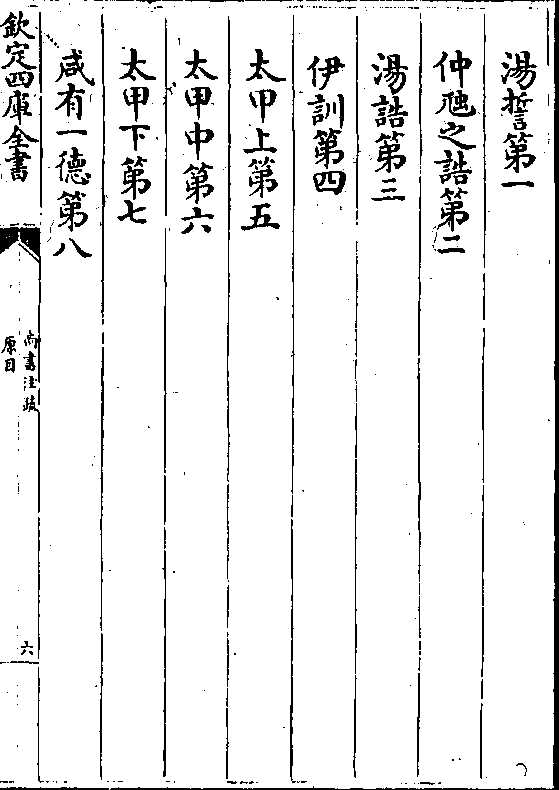 湯誓第一
仲虺之誥第二
湯誥第三
伊訓第四
太甲上第五
太甲中第六
太甲下第七
咸有一德第八
欽定四庫全書
尚書注疏
原目
六